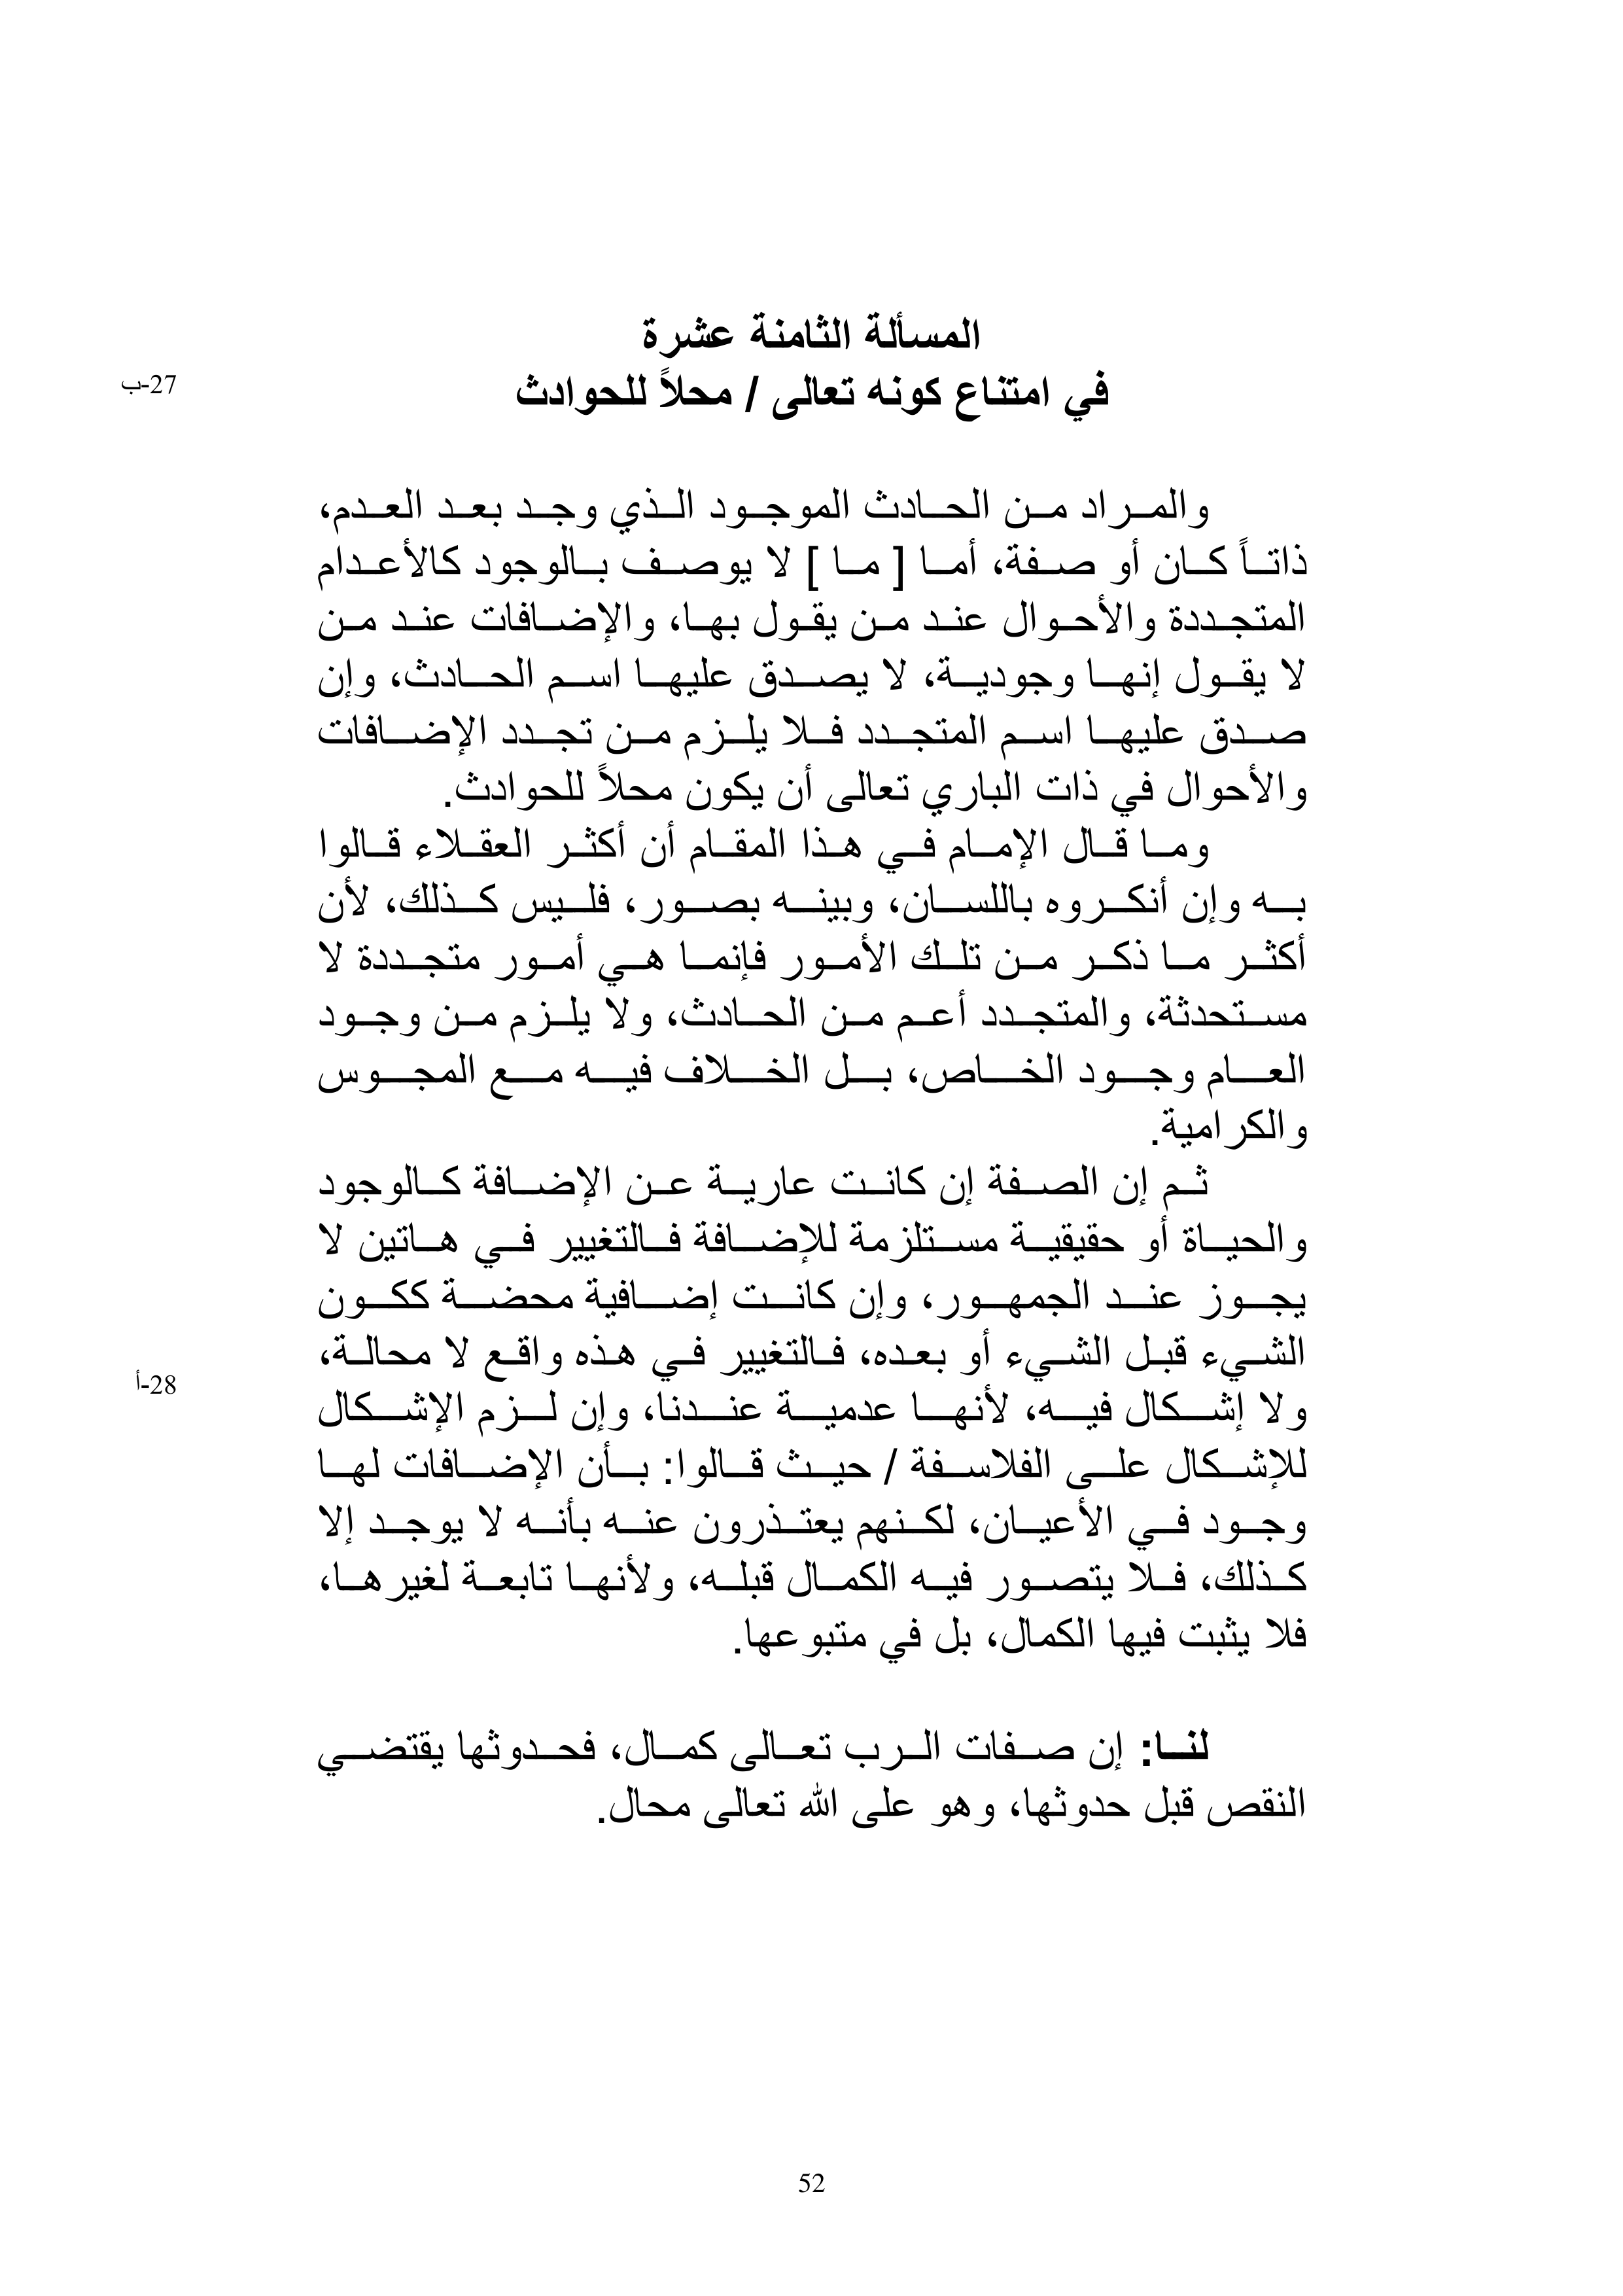 المسألة الثامنة عشرة
27-ب
في امتناع كونه تعالى / محلاً للحوادث
والمراد من الحادث الموجود الذي وجد بعد العدم،
ذاتاً كان أو صفة، أما [ ما ] لا يوصف بالوجود كالأعدام
المتجددة والأحوال عند من يقول بها، والإضافات عند من
لا يقول إنها وجودية، لا يصدق عليها اسم الحادث، وإن
صدق عليها اسم المتجدد فلا يلزم من تجدد الإضافات
والأحوال في ذات الباري تعالى أن يكون محلاً للحوادث.
وما قال الإمام في هذا المقام أن أكثر العقلاء قالوا
به وإن أنكروه باللسان، وبينه بصور، فليس كذلك، لأن
أكثر ما ذكر من تلك الأمور فإنما هي أمور متجددة لا
مستحدثة، والمتجدد أعم من الحادث، ولا يلزم من وجود
العام وجود الخاص، بل الخلاف فيه مع المجوس
والكرامية.
ثم إن الصفة إن كانت عارية عن الإضافة كالوجود
والحياة أو حقيقية مستلزمة للإضافة فالتغيير في هاتين لا
يجوز عند الجمهور، وإن كانت إضافية محضة ككون
الشيء قبل الشيء أو بعده، فالتغيير في هذه واقع لا محالة،
28-أ
ولا إشكال فيه، لأنها عدمية عندنا، وإن لزم الإشكال
للإشكال على الفلاسفة / حيث قالوا: بأن الإضافات لها
وجود في الأعيان، لكنهم يعتذرون عنه بأنه لا يوجد إلا
كذلك، فلا يتصور فيه الكمال قبله، ولأنها تابعة لغيرها،
فلا يثبت فيها الكمال، بل في متبوعها.
لنا: إن صفات الرب تعالى كمال، فحدوثها يقتضي
النقص قبل حدوثها، وهو على الله تعالى محال.
52